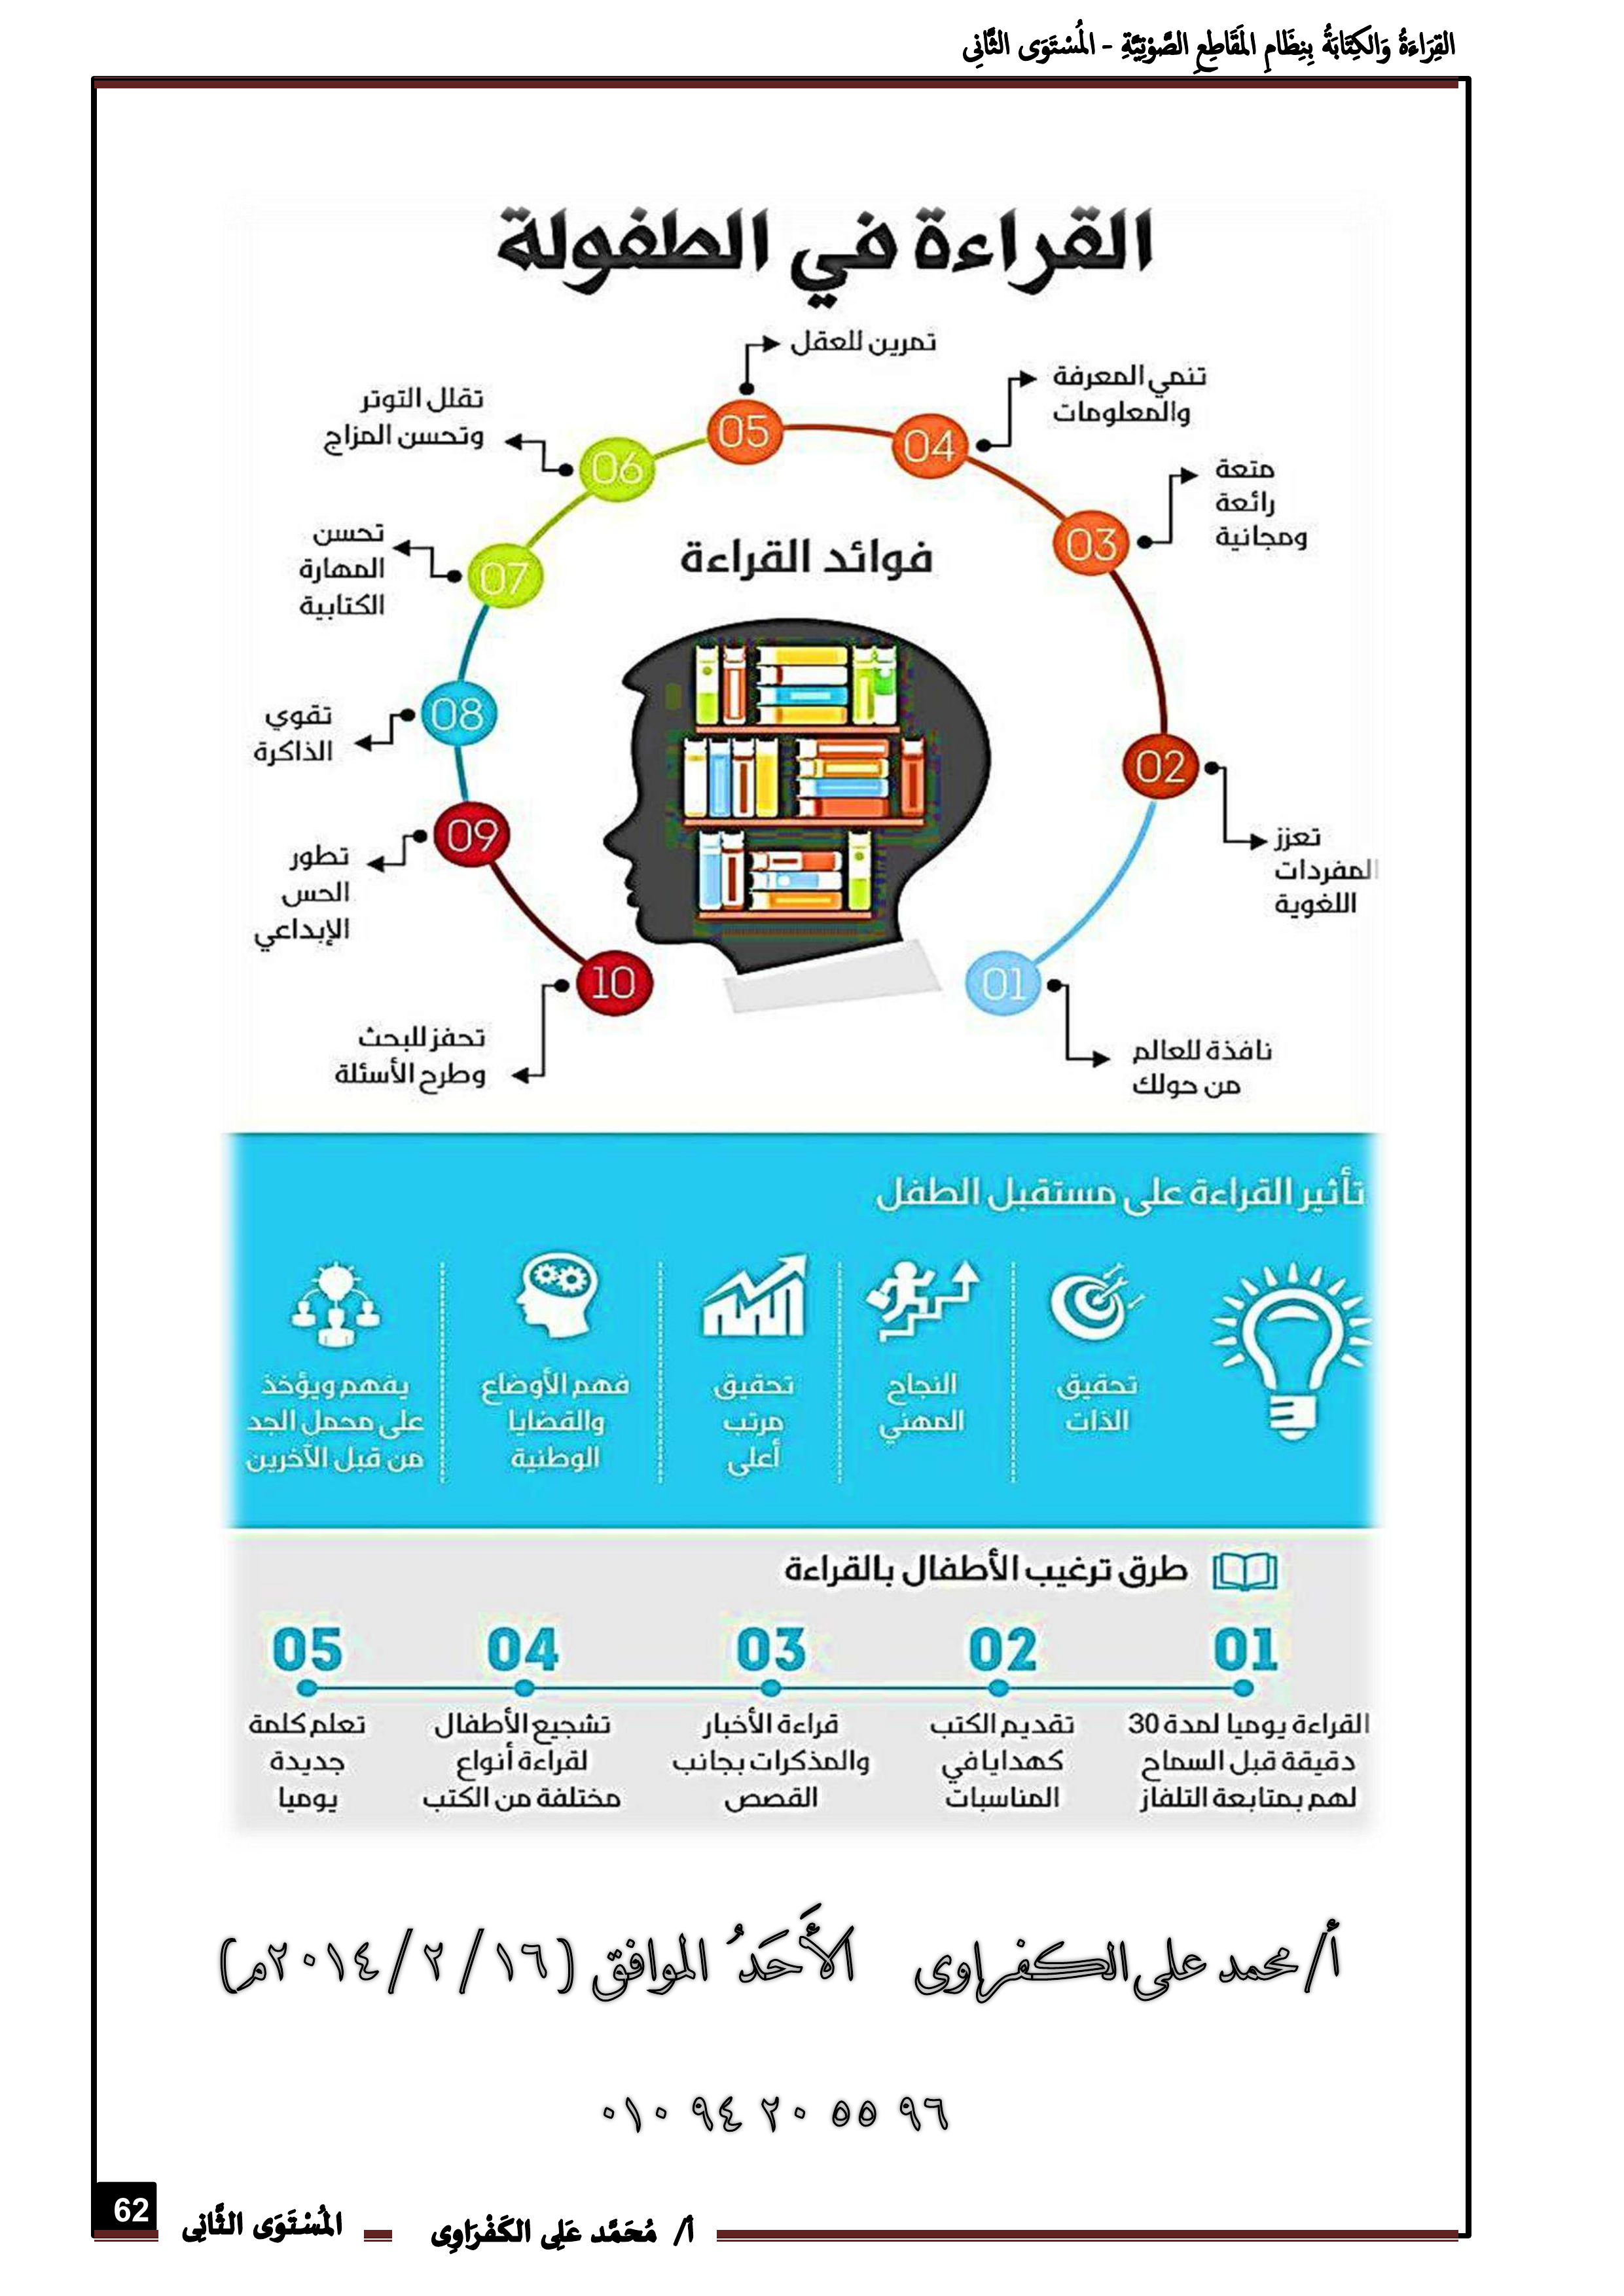 القِرَاءَةُ وَالكِتَابَةُ بِنِظَامِ المَقَاطِعِ الصَّوْتِيَّةِ - المُسْتَوَى الثَّانِى
القراءة في الطفولة
فوائد القراءة
01
نافذة للعالم
من حولك
02
تعزز
المفردات
اللغوية
03
متعة
رائعة
ومجانية
04
تنمي المعرفة
والمعلومات
05
تمرين للعقل
06
تقلل التوتر
وتحسن المزاج
07
تحسن
المهارة
الكتابية
08
تقوي
الذاكرة
09
تطور
الحس
الإبداعي
10
تحفز للبحث
وطرح الأسئلة
تأثير القراءة على مستقبل الطفل
تحقيق
الذات
النجاح
المهني
تحقيق
مرتب
أعلى
فهم الأوضاع
والقضايا
الوطنية
يفهم ويؤخذ
على محمل الجد
من قبل الآخرين
طرق ترغيب الأطفال بالقراءة
01
القراءة يوميا لمدة 30
دقيقة قبل السماح
لهم بمتابعة التلفاز
02
تقديم الكتب
كهدايا في
المناسبات
03
قراءة الأخبار
والمذكرات بجانب
القصص
04
تشجيع الأطفال
لقراءة أنواع
مختلفة من الكتب
05
تعلم كلمة
جديدة
يوميا
أ/ محمد على الكفراوى الأَحَدُ الموافق (١٦ / ٢ / ٢٠١٤م)
٠١٠ ٩٤ ٢٠ ٥٥ ٩٦
أ/ مُحَمَّد عَلِى الكَفْرَاوِى
المُسْتَوَى الثَّانِى
62